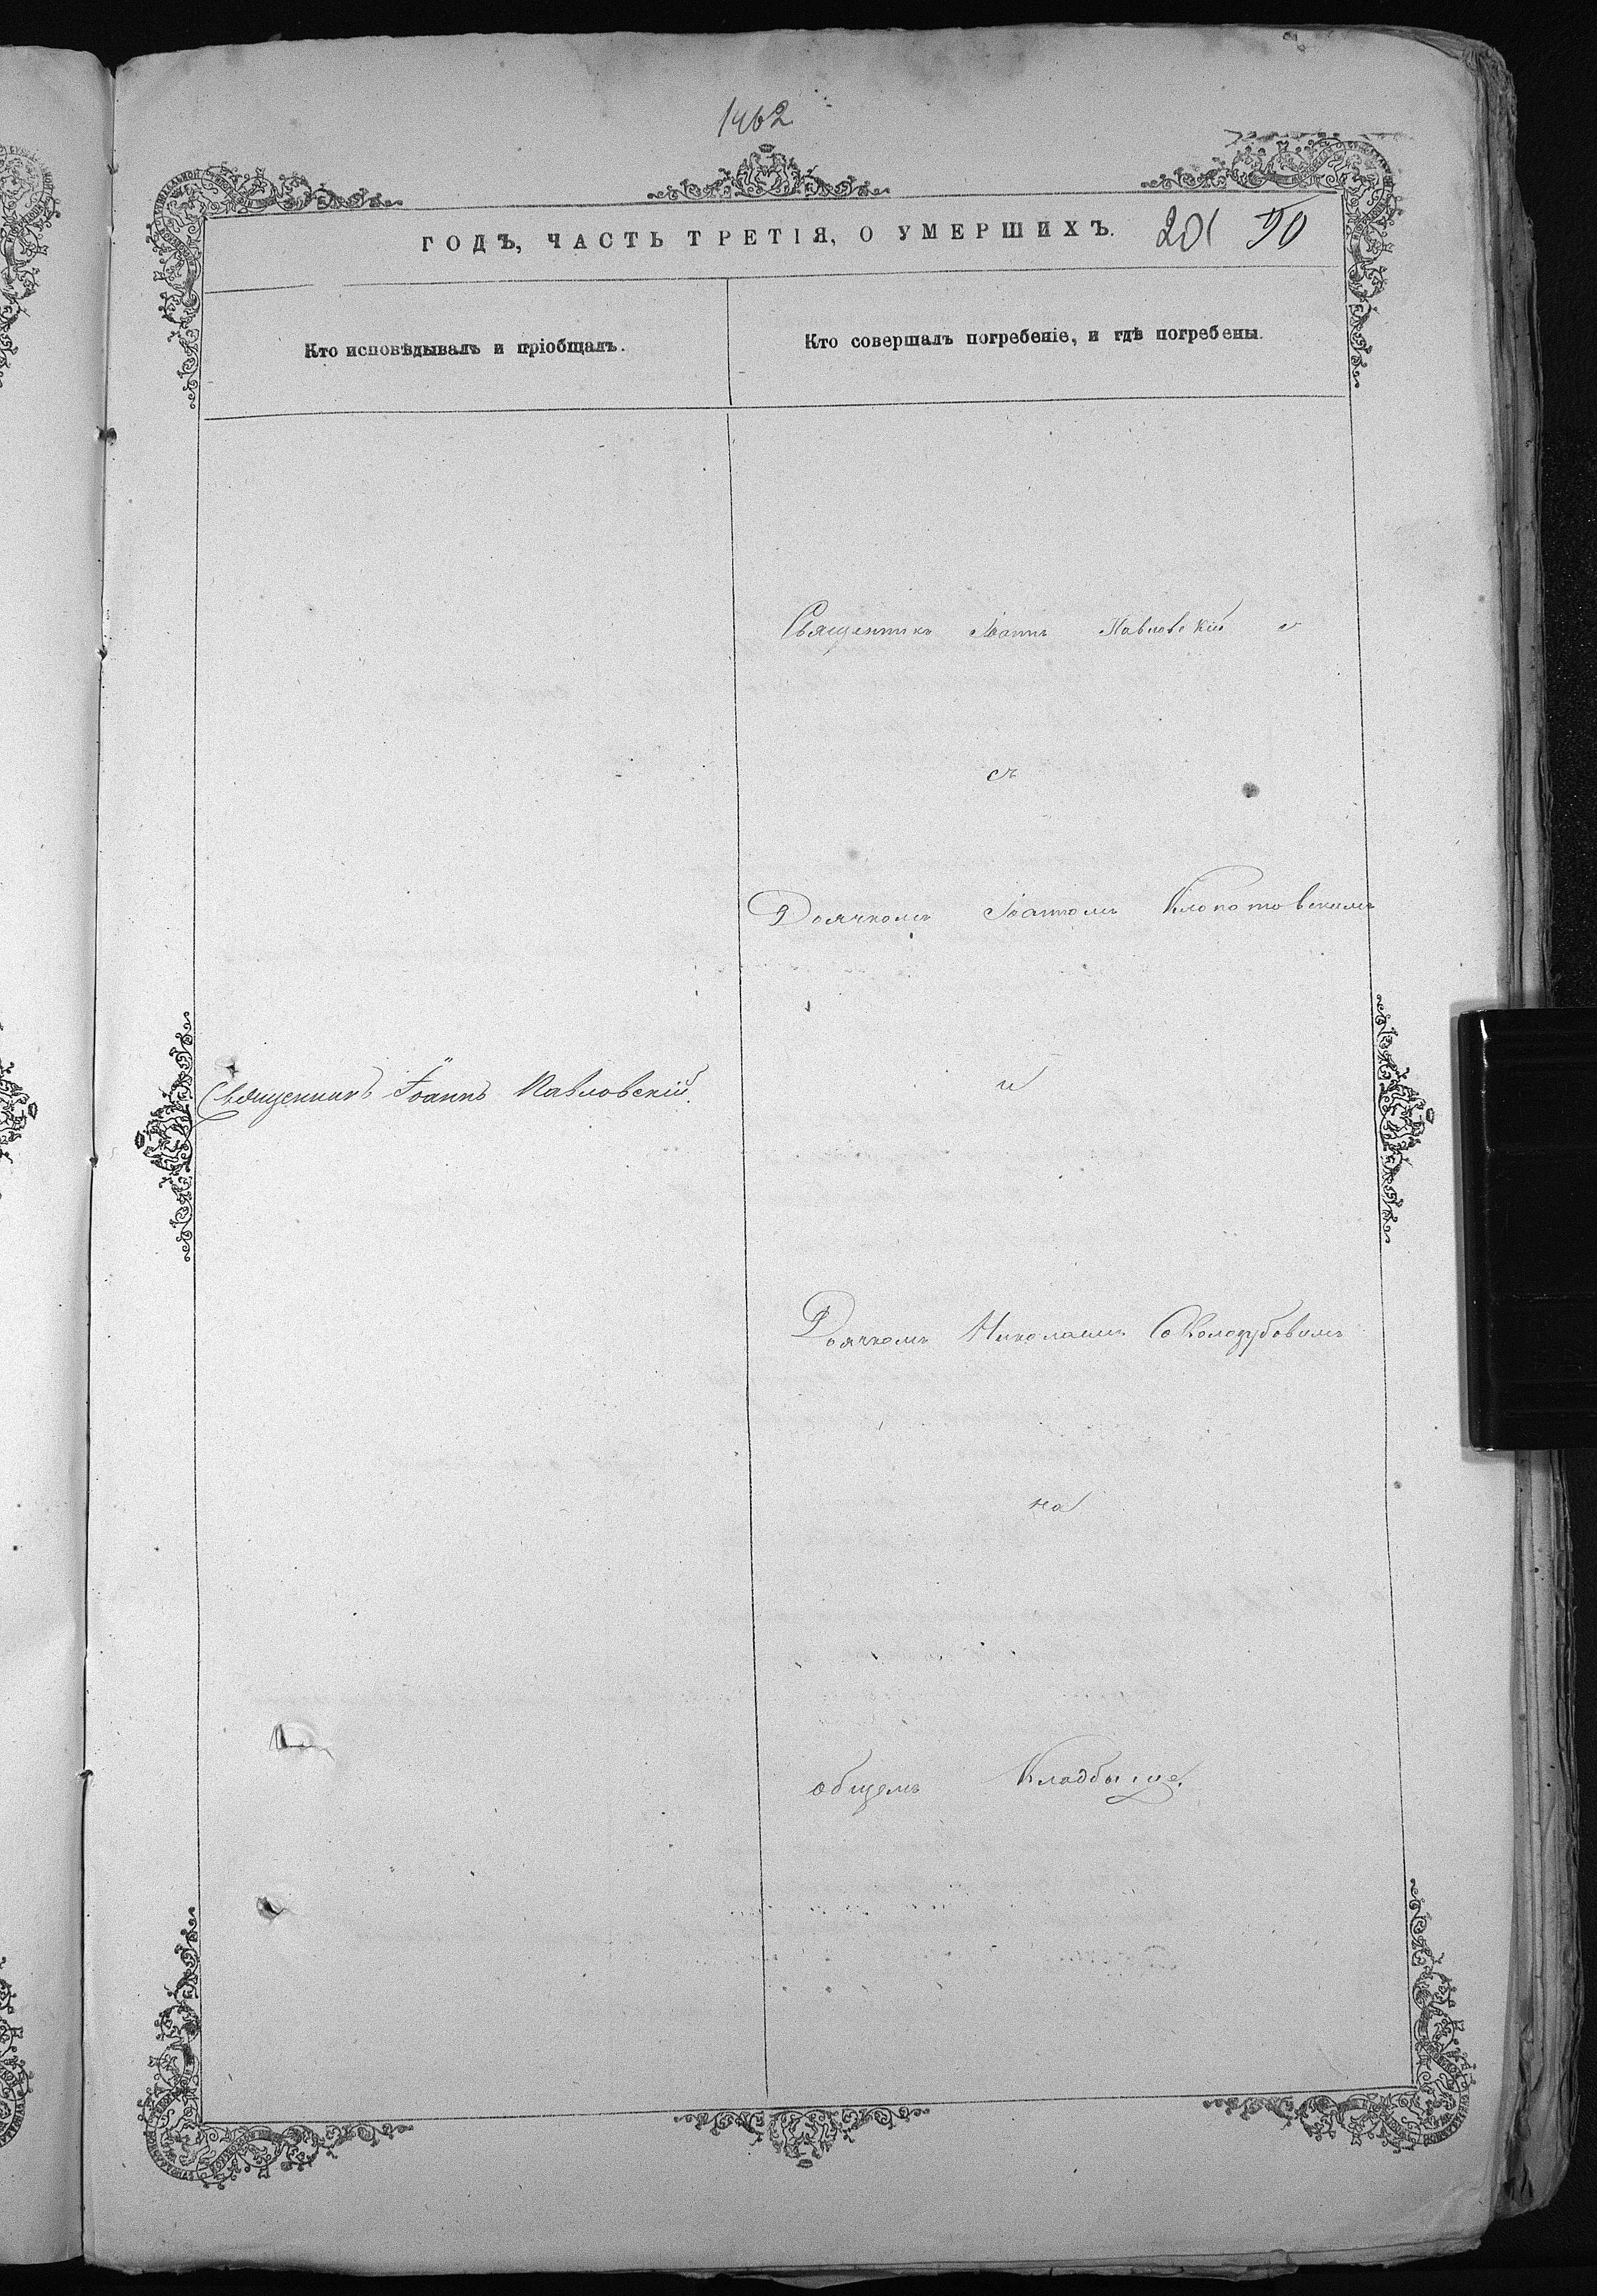 1462
ГОДЪ, ЧАСТЬ ТРЕТІЯ, О УМЕРШИХЪ. 201 90
Кто исповѣдывалъ и пріобщалъ.
Кто совершалъ погребеніе, и гдѣ погребены.
Священникъ Іоаннъ Павловскій.
Священникъ Іоаннъ Павловскій
съ
Дьячкомъ Іоанномъ Клопотовскимъ
и
Дьячкомъ Николаемъ
на
общемъ Кладбыще.